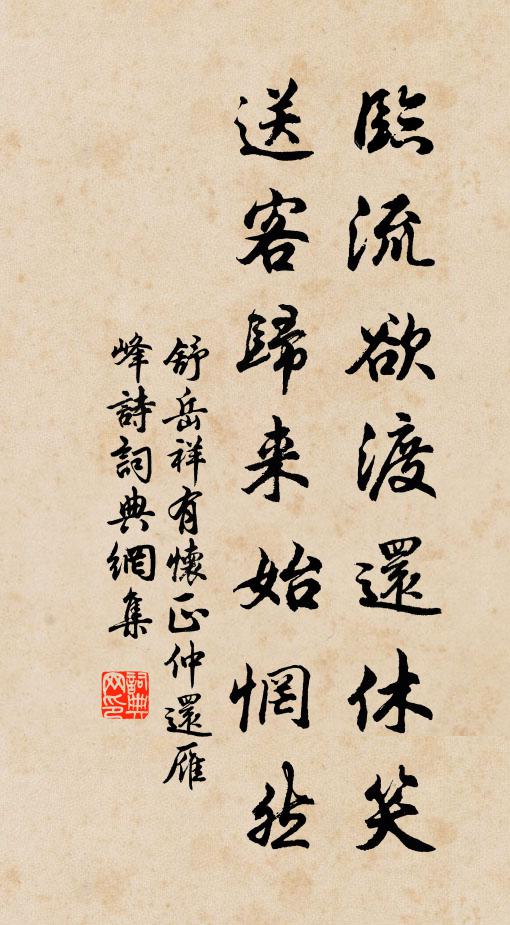 臨流欲渡還休笑
送客歸来始惘然
舒岳祥有懷正仲還雁
峰詩詞典網集
詞典
网印